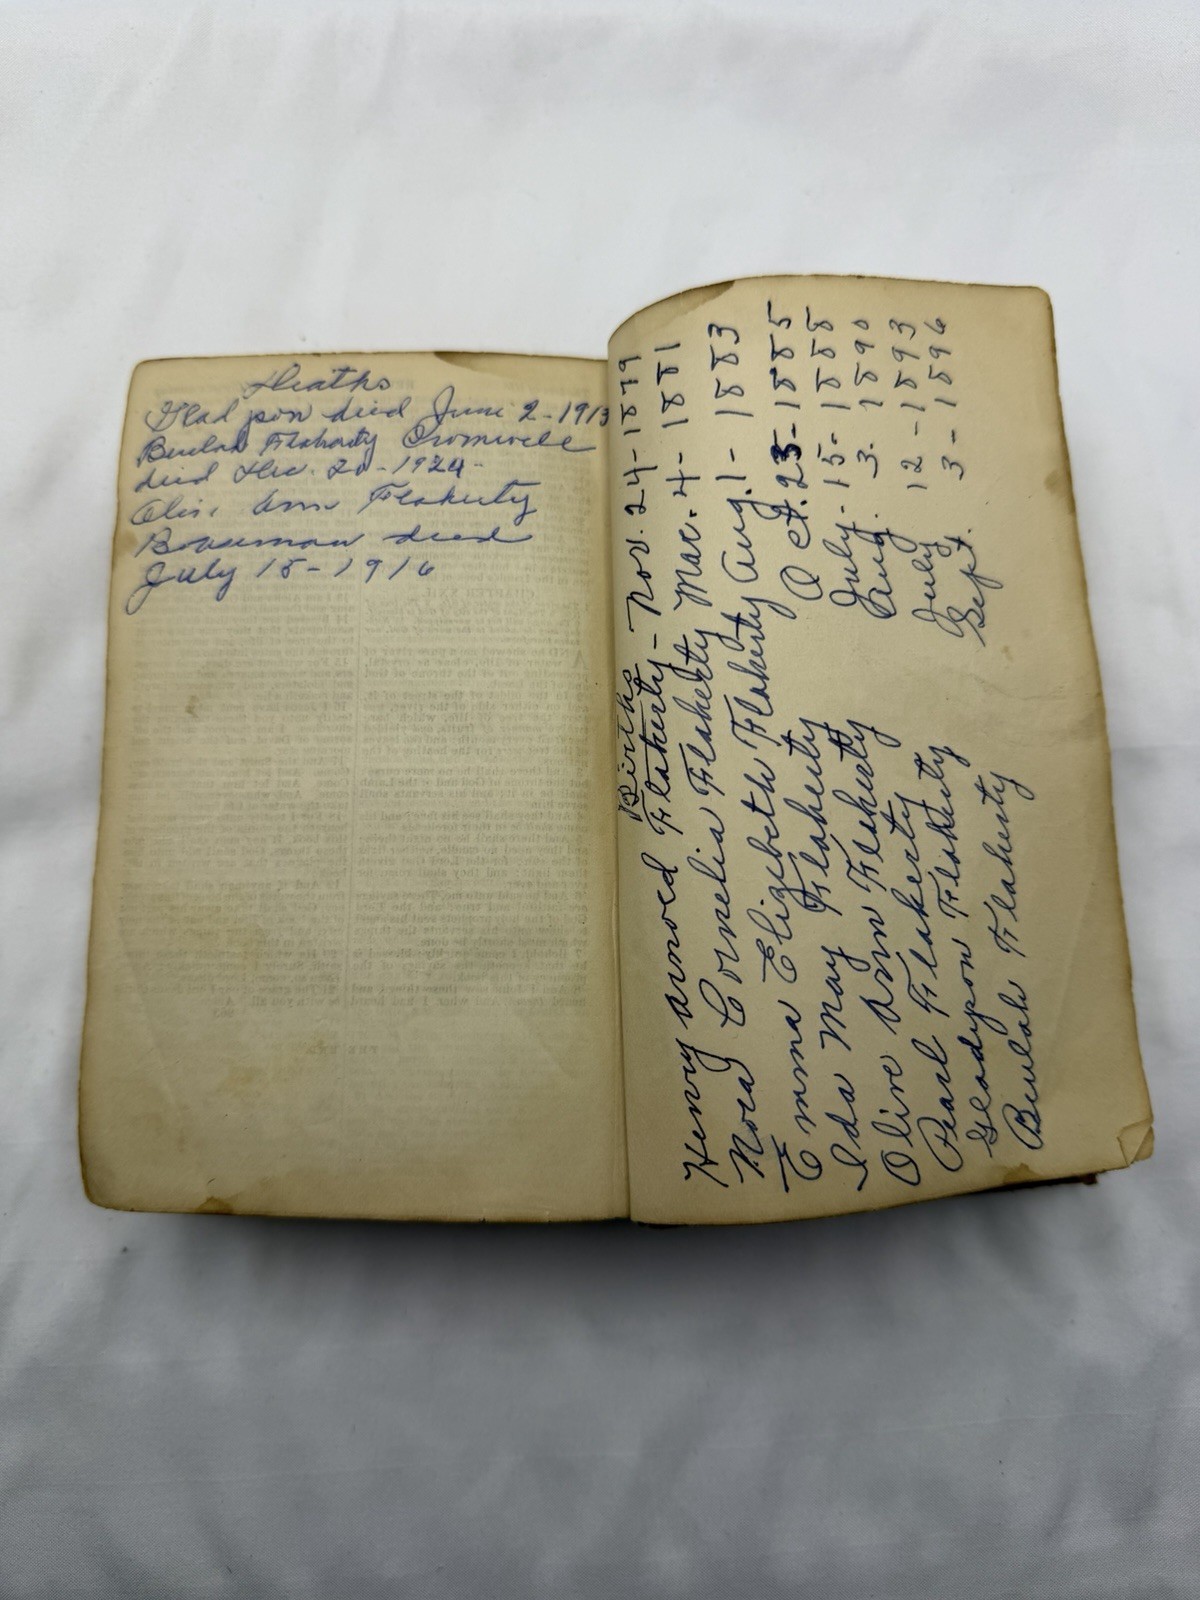 Deaths
Glad pon died June 2-1913
Beulah Flaherty Cromwell
died Dec. 20-1924-
Olive Ann Flaherty
Bowman died
July 15-1916
Births
Henry Arnold Flaherty - Nov. 24-1879
Nora Cornelia Flaherty Mar. 4-1881
Emma Elizibeth Flaherty Aug. 1- 1883
Ida May Flaherty Oct. 25-1885
Olive Ann Flaherty July-15-1888
Pearl Flaherty Aug. 3. 1890
Gladypon Flaherty July 12-1893
Beulah Flaherty Sept. 3-1896